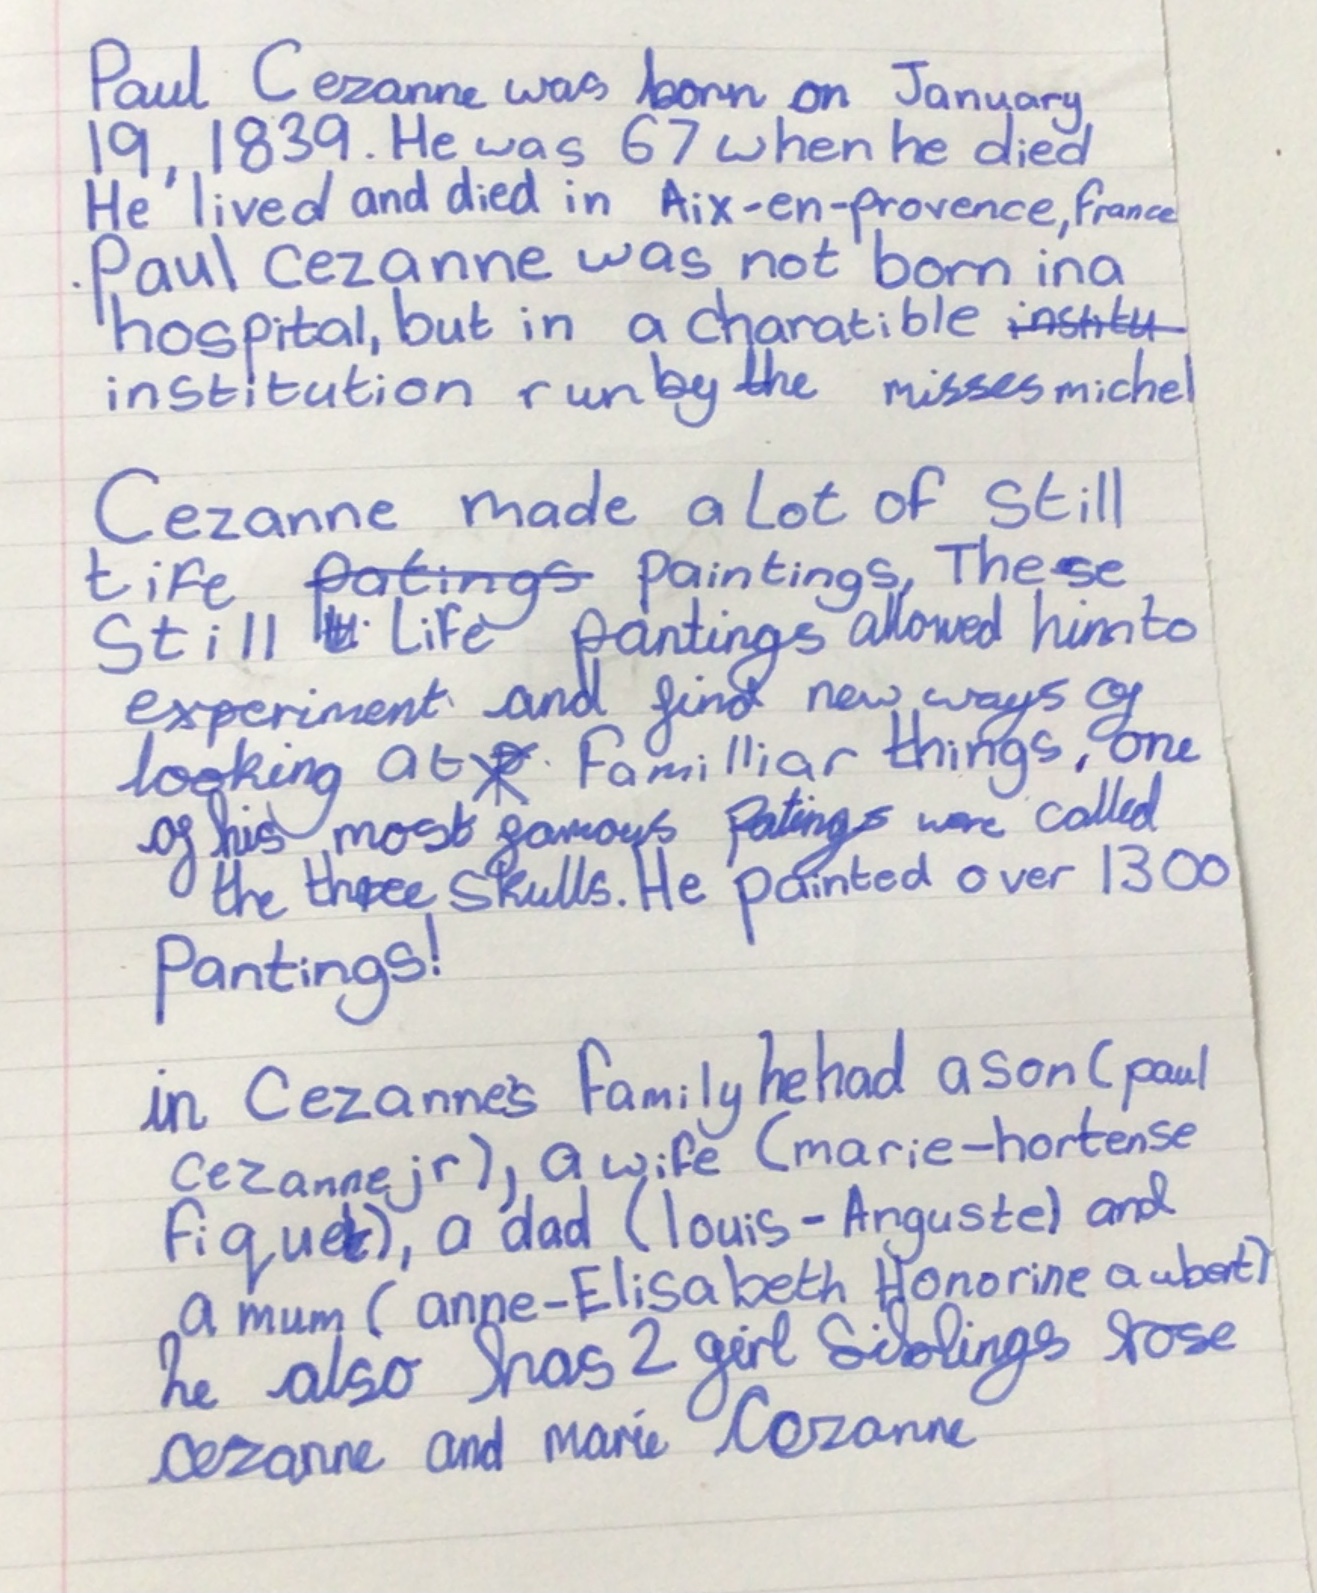 Paul Cezanne was born on January
19, 1839. He was 67 when he died
He lived and died in Aix-en-provence, france
.Paul cezanne was not born in a
hospital, but in a charatible institu
institution run by the misses michel
Cezanne made a Lot of Still
Life patings paintings, These
Still Life pantings allowed him to
experiment and find new ways of
looking at familliar things, one
of his most famous patings were called
the three skulls. He painted over 1300
Pantings!
in Cezanne's family he had a son (paul
cezanne jr), a wife (marie-hortense
fiquet), a dad (louis-Anguste) and
a mum (anne-Elisabeth Honorine aubert)
he also has 2 girl siblings rose
cezanne and marie Cezanne